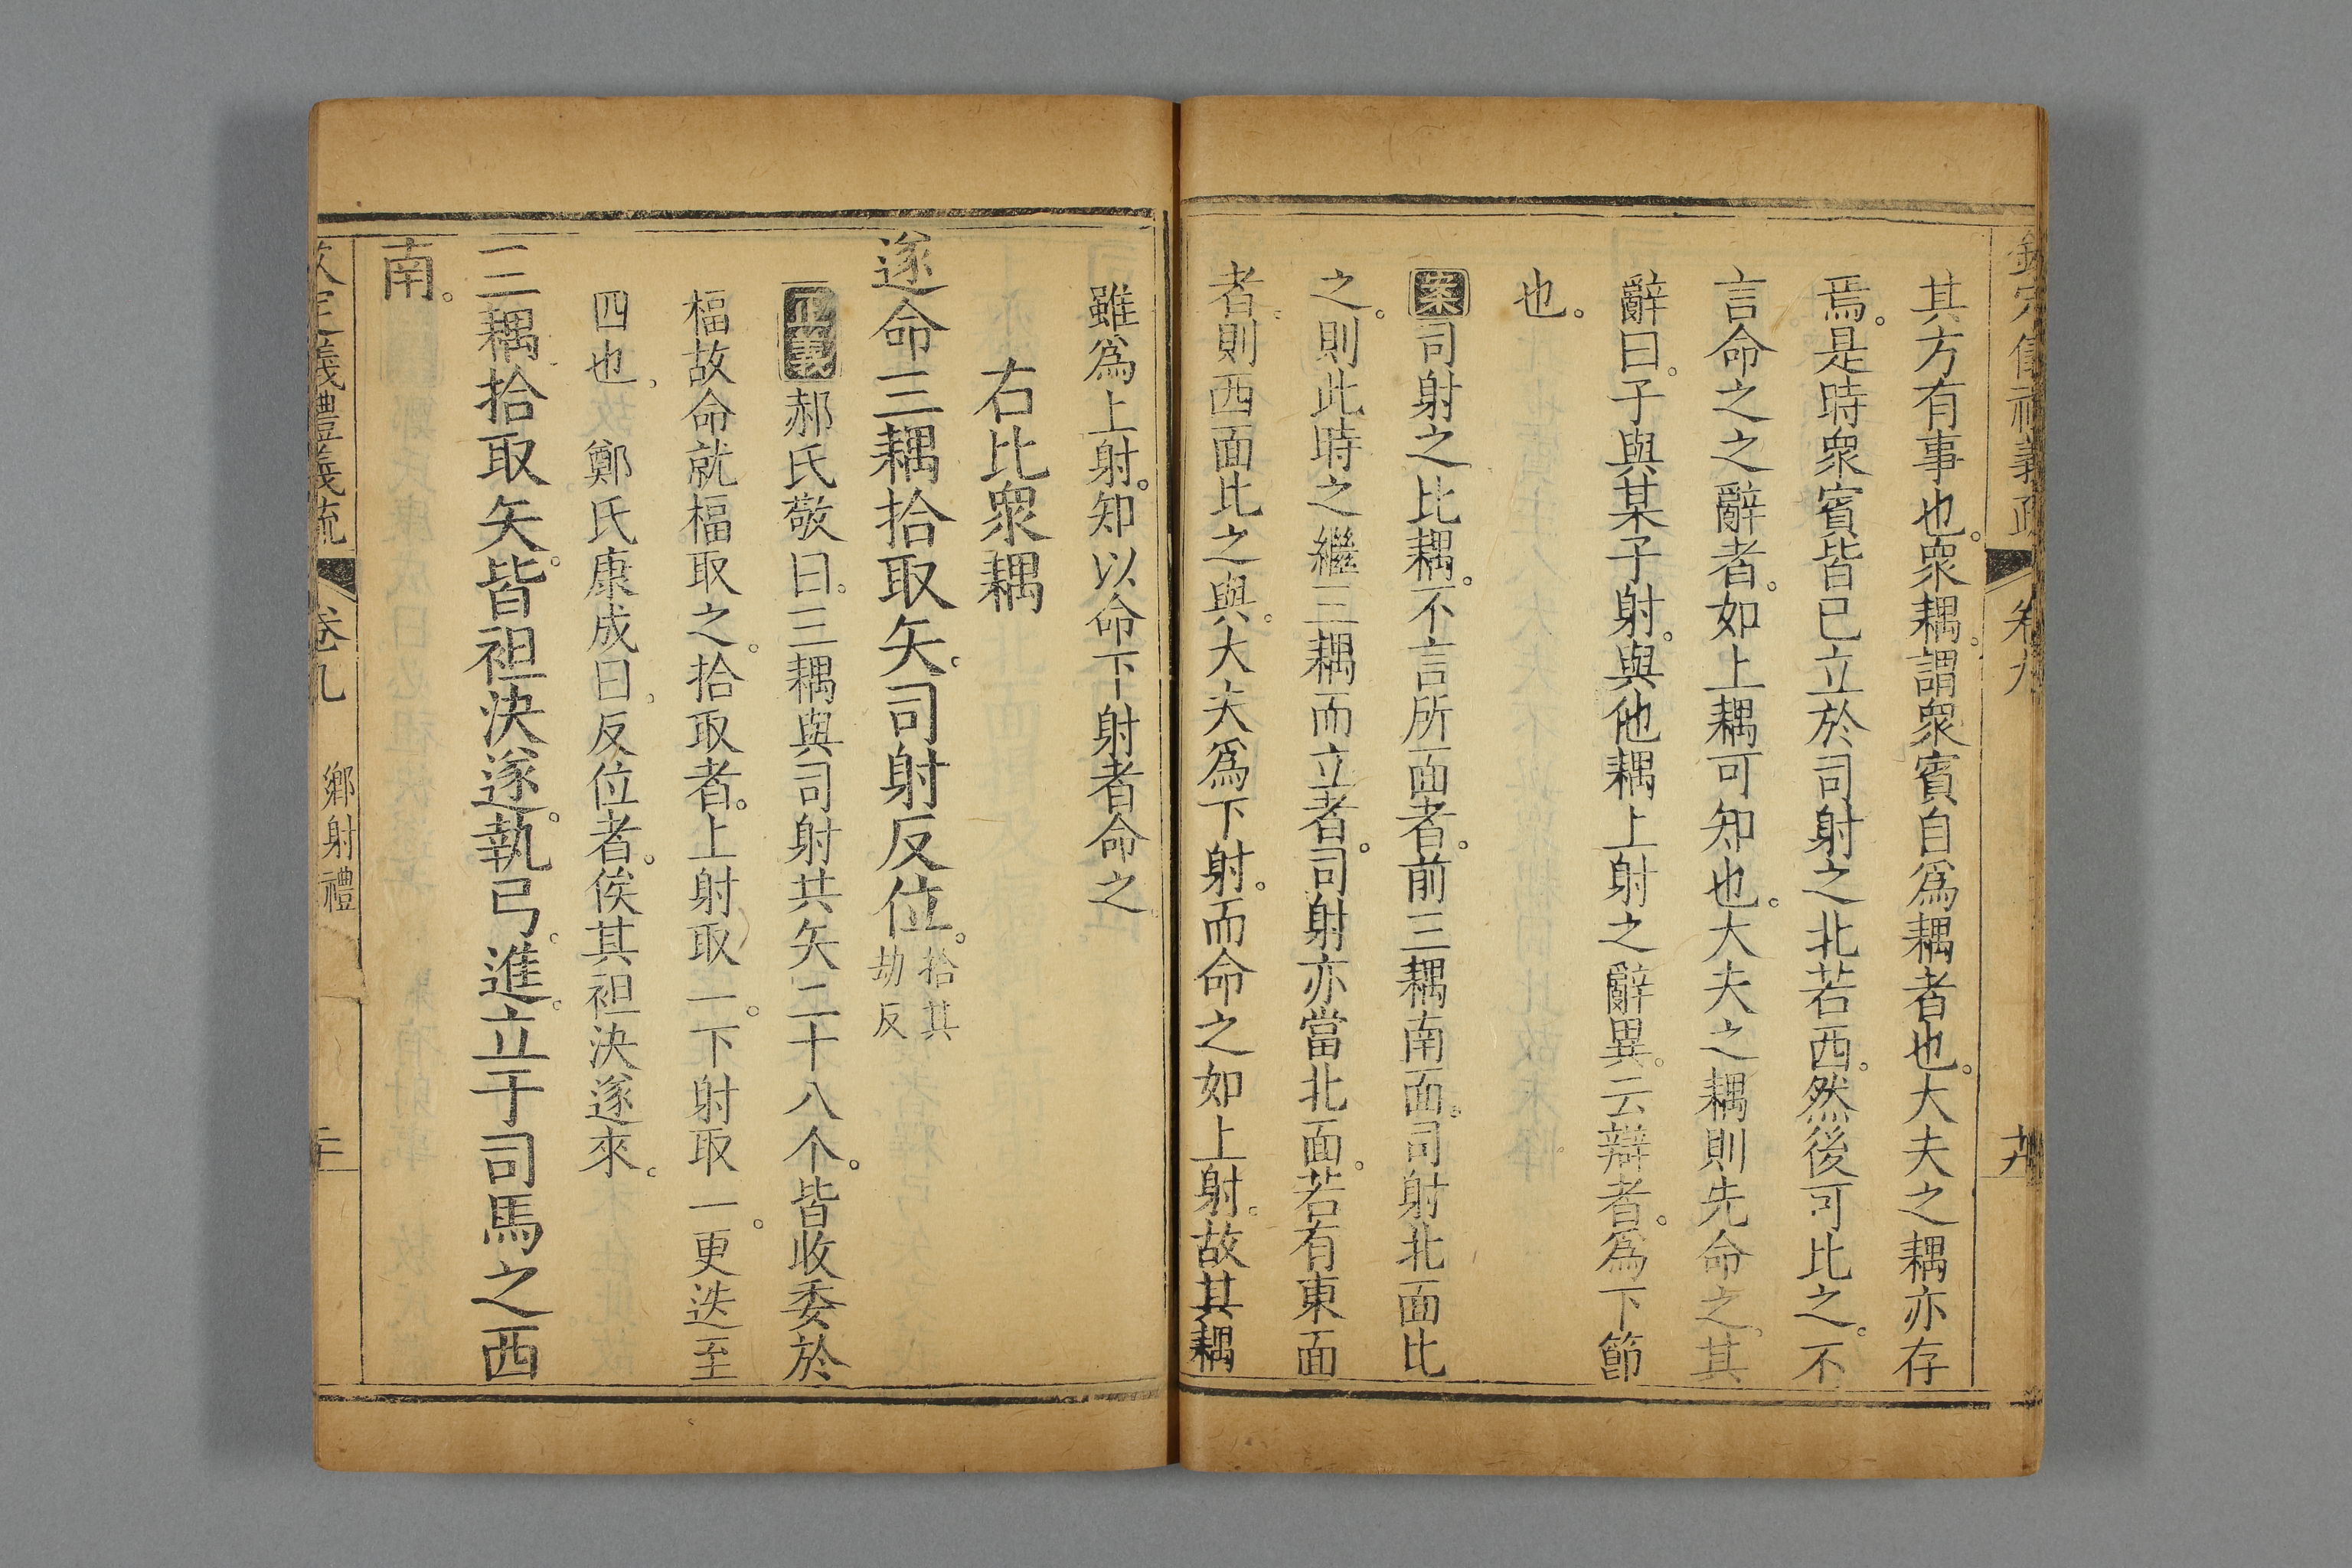 欽定儀禮義疏 卷九
其方有事也。衆耦。謂衆賓自爲耦者也。大夫之耦亦存
焉。是時衆賓皆已立於司射之北若西。然後可比之。不
言命之之辭者。如上耦可知也。大夫之耦則先命之。其
辭曰。子與某子射。與他耦上射之辭異。云辯者。爲下節
也。
案司射之比耦。不言所面者。前三耦南面。司射北面比
之。則此時之繼三耦而立者。司射亦當北面。若有東面
者。則西面比之與。大夫爲下射。而命之如上射。故其耦
雖爲上射。知以命下射者命之
右比衆耦
遂命三耦拾取矢。司射反位。拾其劫反
正義郝氏敬曰。三耦與司射共矢二十八个。皆收委於
楅故命就楅取之。拾取者。上射取一。下射取一。更迭至
四也。鄭氏康成曰。反位者。俟其袒決遂來。
三耦拾取矢。皆袒決遂。執弓。進。立于司馬之西
南。
欽定儀禮義疏 卷九 鄉射禮